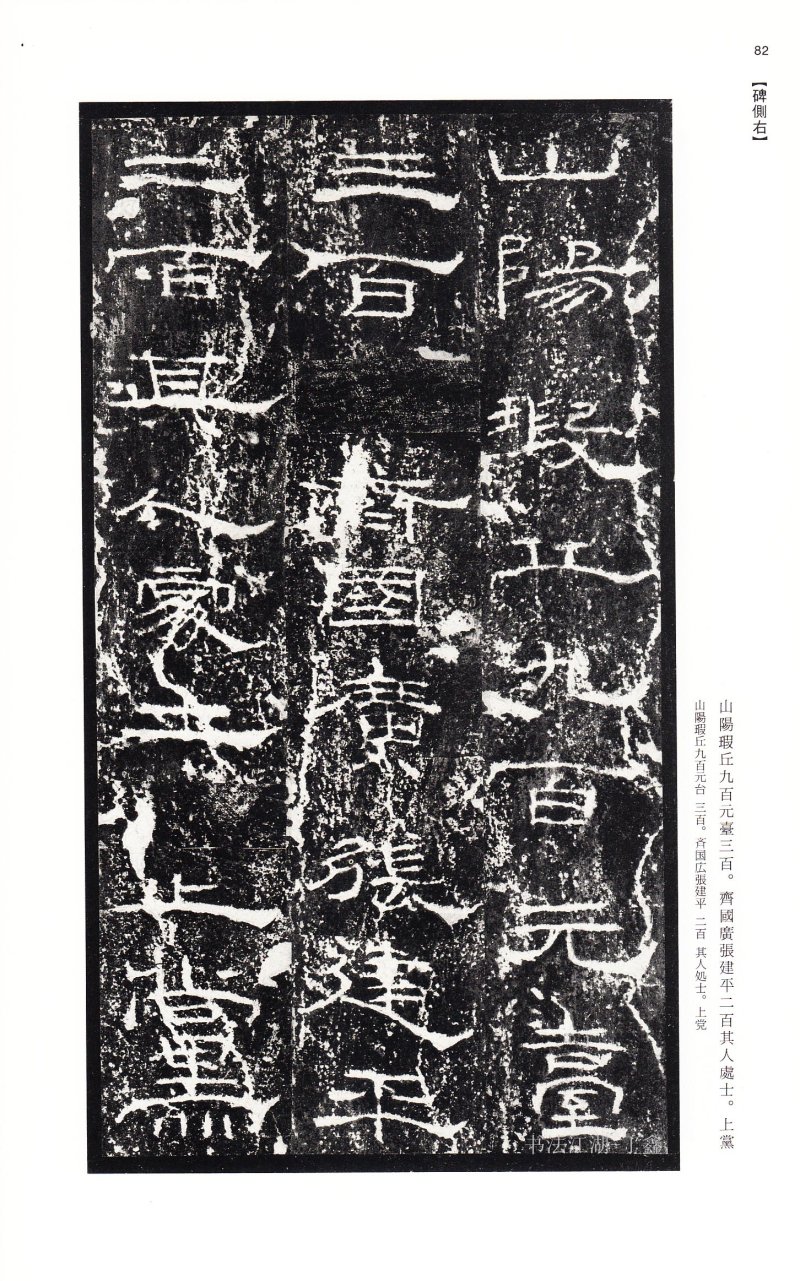 82
【碑側右】
山陽瑕丘九百元臺
三百齊國廣張建平
二百其人處士上黨
山陽瑕丘九百元臺三百。齊國廣張建平二百其人處士。上黨
山陽瑕丘九百元台 三百。斉国広張建平 二百 其人処士。上党
书法江湖 丁鑫